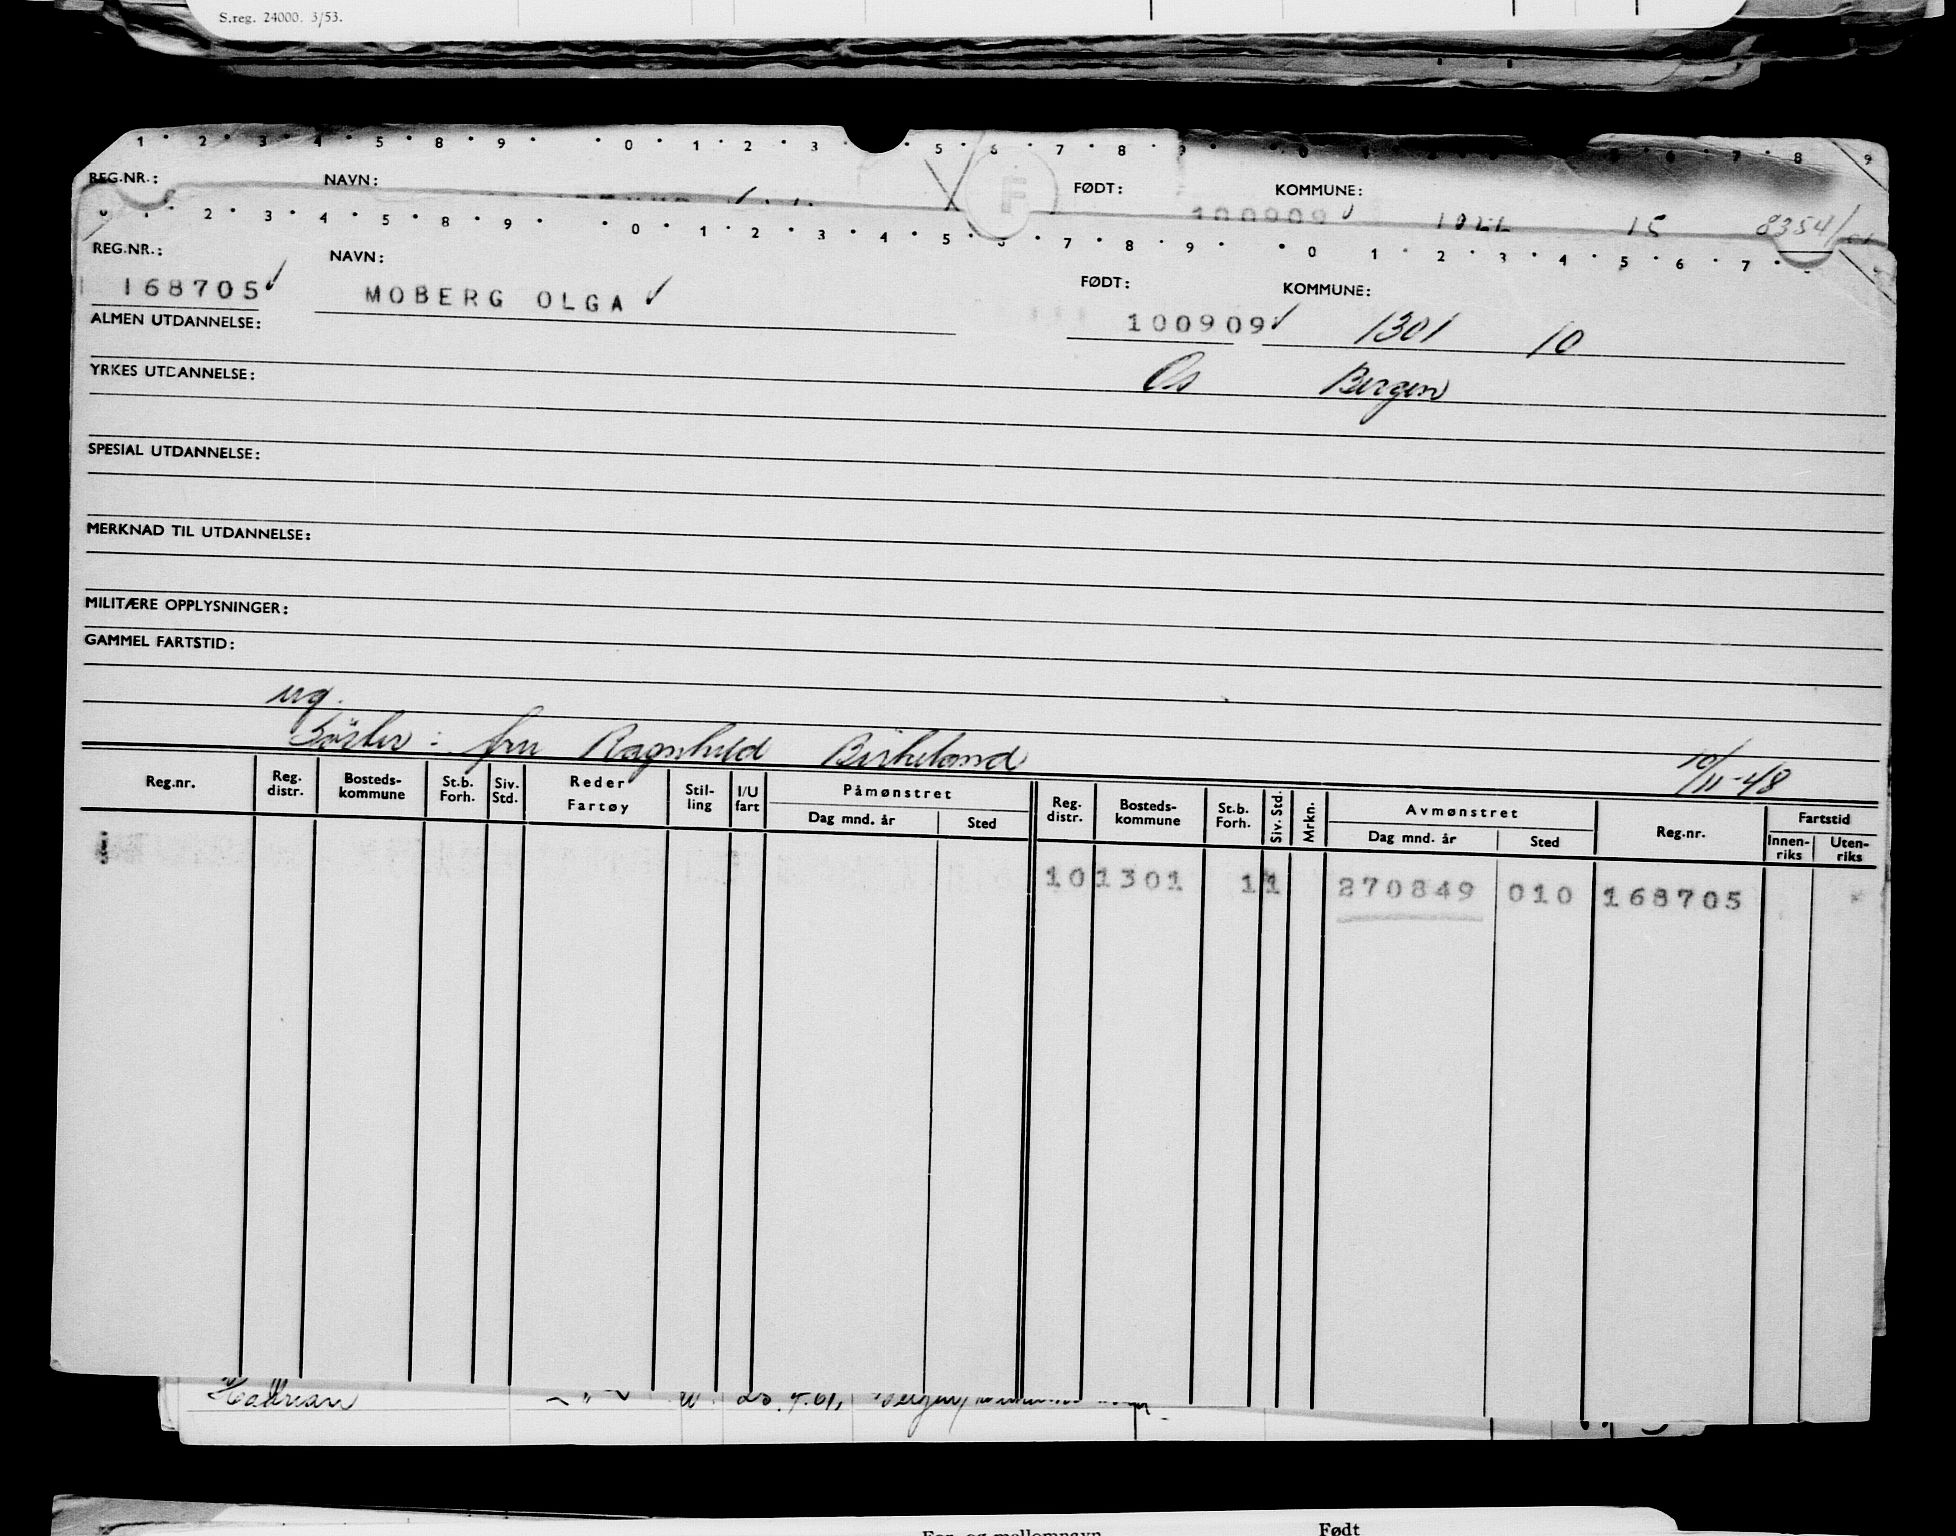 S.reg. 24000. 3/53.
1 2 3 4 5 8 9 0 1 2 3 5 6 7 8 9 0 6 7 8 9
REG.NR.: NAVN: FØDT: KOMMUNE:
F
100909 15 8354/
1 2 3 4 5 8 9 0 1 2 3 4 5 6 7 8 9 0 1 2 3 4 5 6 7
REG.NR.: NAVN: FØDT: KOMMUNE:
168705 MOBERG OLGA 100909 1301 10
ALMEN UTDANNELSE:
Os Bergen
YRKES UTDANNELSE:
SPESIAL UTDANNELSE:
MERKNAD TIL UTDANNELSE:
MILITÆRE OPPLYSNINGER:
GAMMEL FARTSTID:
ug.
Søster: fru Ragnhild Birkeland 10/11-48
Reg.nr. Reg. distr. Bosteds-kommune St.b. Forh. Siv. Std. Reder Fartøy Stil-ling I/U fart Påmønstret Dag mnd. år Sted Reg. distr. Bosteds-kommune St.b. Forh. Siv. Std. Mrkn. Avmønstret Dag mnd. år Sted Reg.nr. Fartstid Innen-riks Uten-riks
10 1301 1 1 270849 010 168705
Født